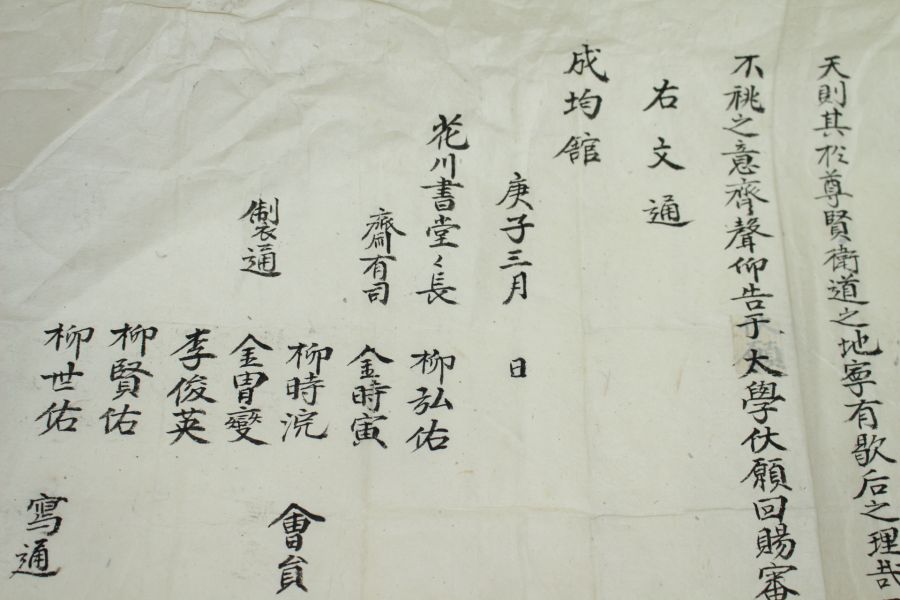 天則其於尊賢衛道之地寧有歇后之理哉
不祧之意齊聲仰告于太學伏願回賜審
右文通
成均館
庚子三月 日
花川書堂々長 柳弘佑
齋有司 金時寅
柳時浣
會員
製通 金胄變
李俊英
柳賢佑
柳世佑
寫通